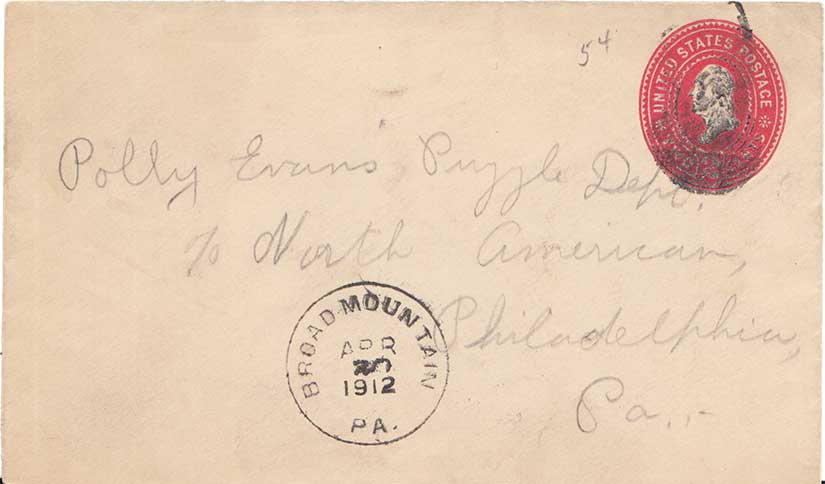 54
UNITED STATES POSTAGE
Polly Evans' Puzzle Dept.
% North American,
Philadelphia,
Pa.,-
BROAD MOUNTAIN
APR
1912
PA.